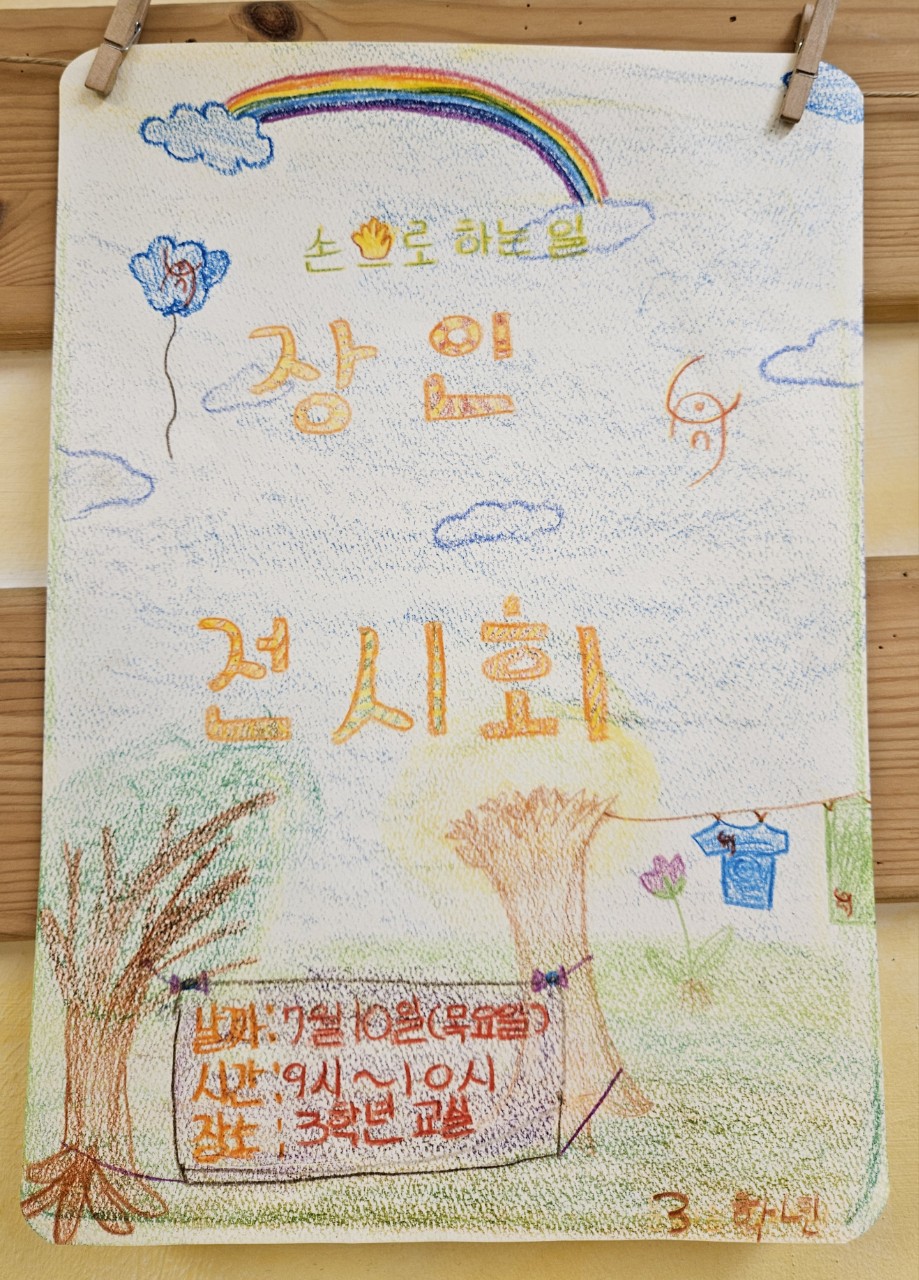 손으로 하는 일
장인
전시회
날짜: 7월 10일(목요일)
시간: 9시~10시
장소: 3학년 교실
3학년